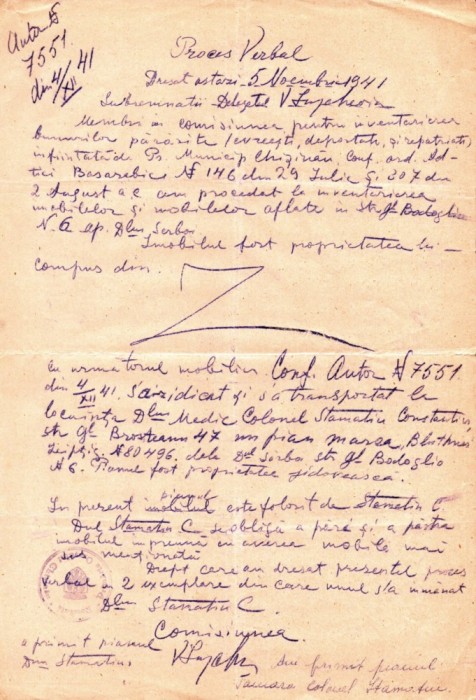 Autor N
7551
din 4/XII 41
Proces Verbal
Dresat astazi 5 Noembrie 1941
Subsemnatii Delegatul V.
Membri in comisiunea pentru inventarierea
bunurilor părăsite (evreești, deportati, și repatriati,
infiintată de Ps. Municip Chișinău, Conf. ord.
Basarabiei N 146 din 29 Iulie și 307 din
2 August a.c. am procedat la inventarierea
imobilelor și mobilelor aflate in str. Gl. Badoglio
N. 6 ap. Dlui Sârbo
Imobilul fost proprietatea lui
compus din.
cu urmatorul mobilier Conf. Autor N 7551
din 4/XII 41. S'a ridicat și s'a transportat la
locuința Dlui Medic Colonel Stamatiu Constantin
str. Gl. Broșteanu 47 un pian marca, Blüthner
Leipzig, N 80496. dela Dul Sârbo str. Gl. Badoglio
N 6. Pianul fost proprietatea jidovească.
In prezent imobilul pianul este folosit de Stamatiu C.
Dul Stamatiu C se obligă a păzi și a păstra
imobilul impreună cu averea mobilă mai
sus menționată
Drept care am dresat prezentul proces
verbal in 2 exemplare din care unul s'a inmânat
Dlui Stamatiu C.
Comisiunea.
a primit pianul
Dna Stamatiu
am primit pianul
Tamara Colonel Stamatiu.